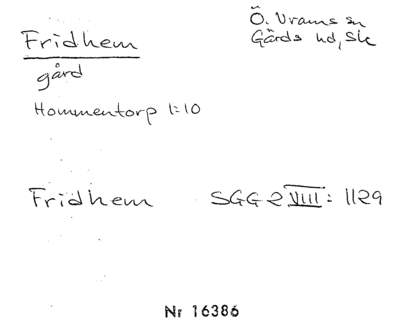 Fridhem
Ö. Vrams sn
Gärds hd, Sk
gård
Hommentorp 1:10
Fridhem SGG 2 VIII: 1129
Nr 16386